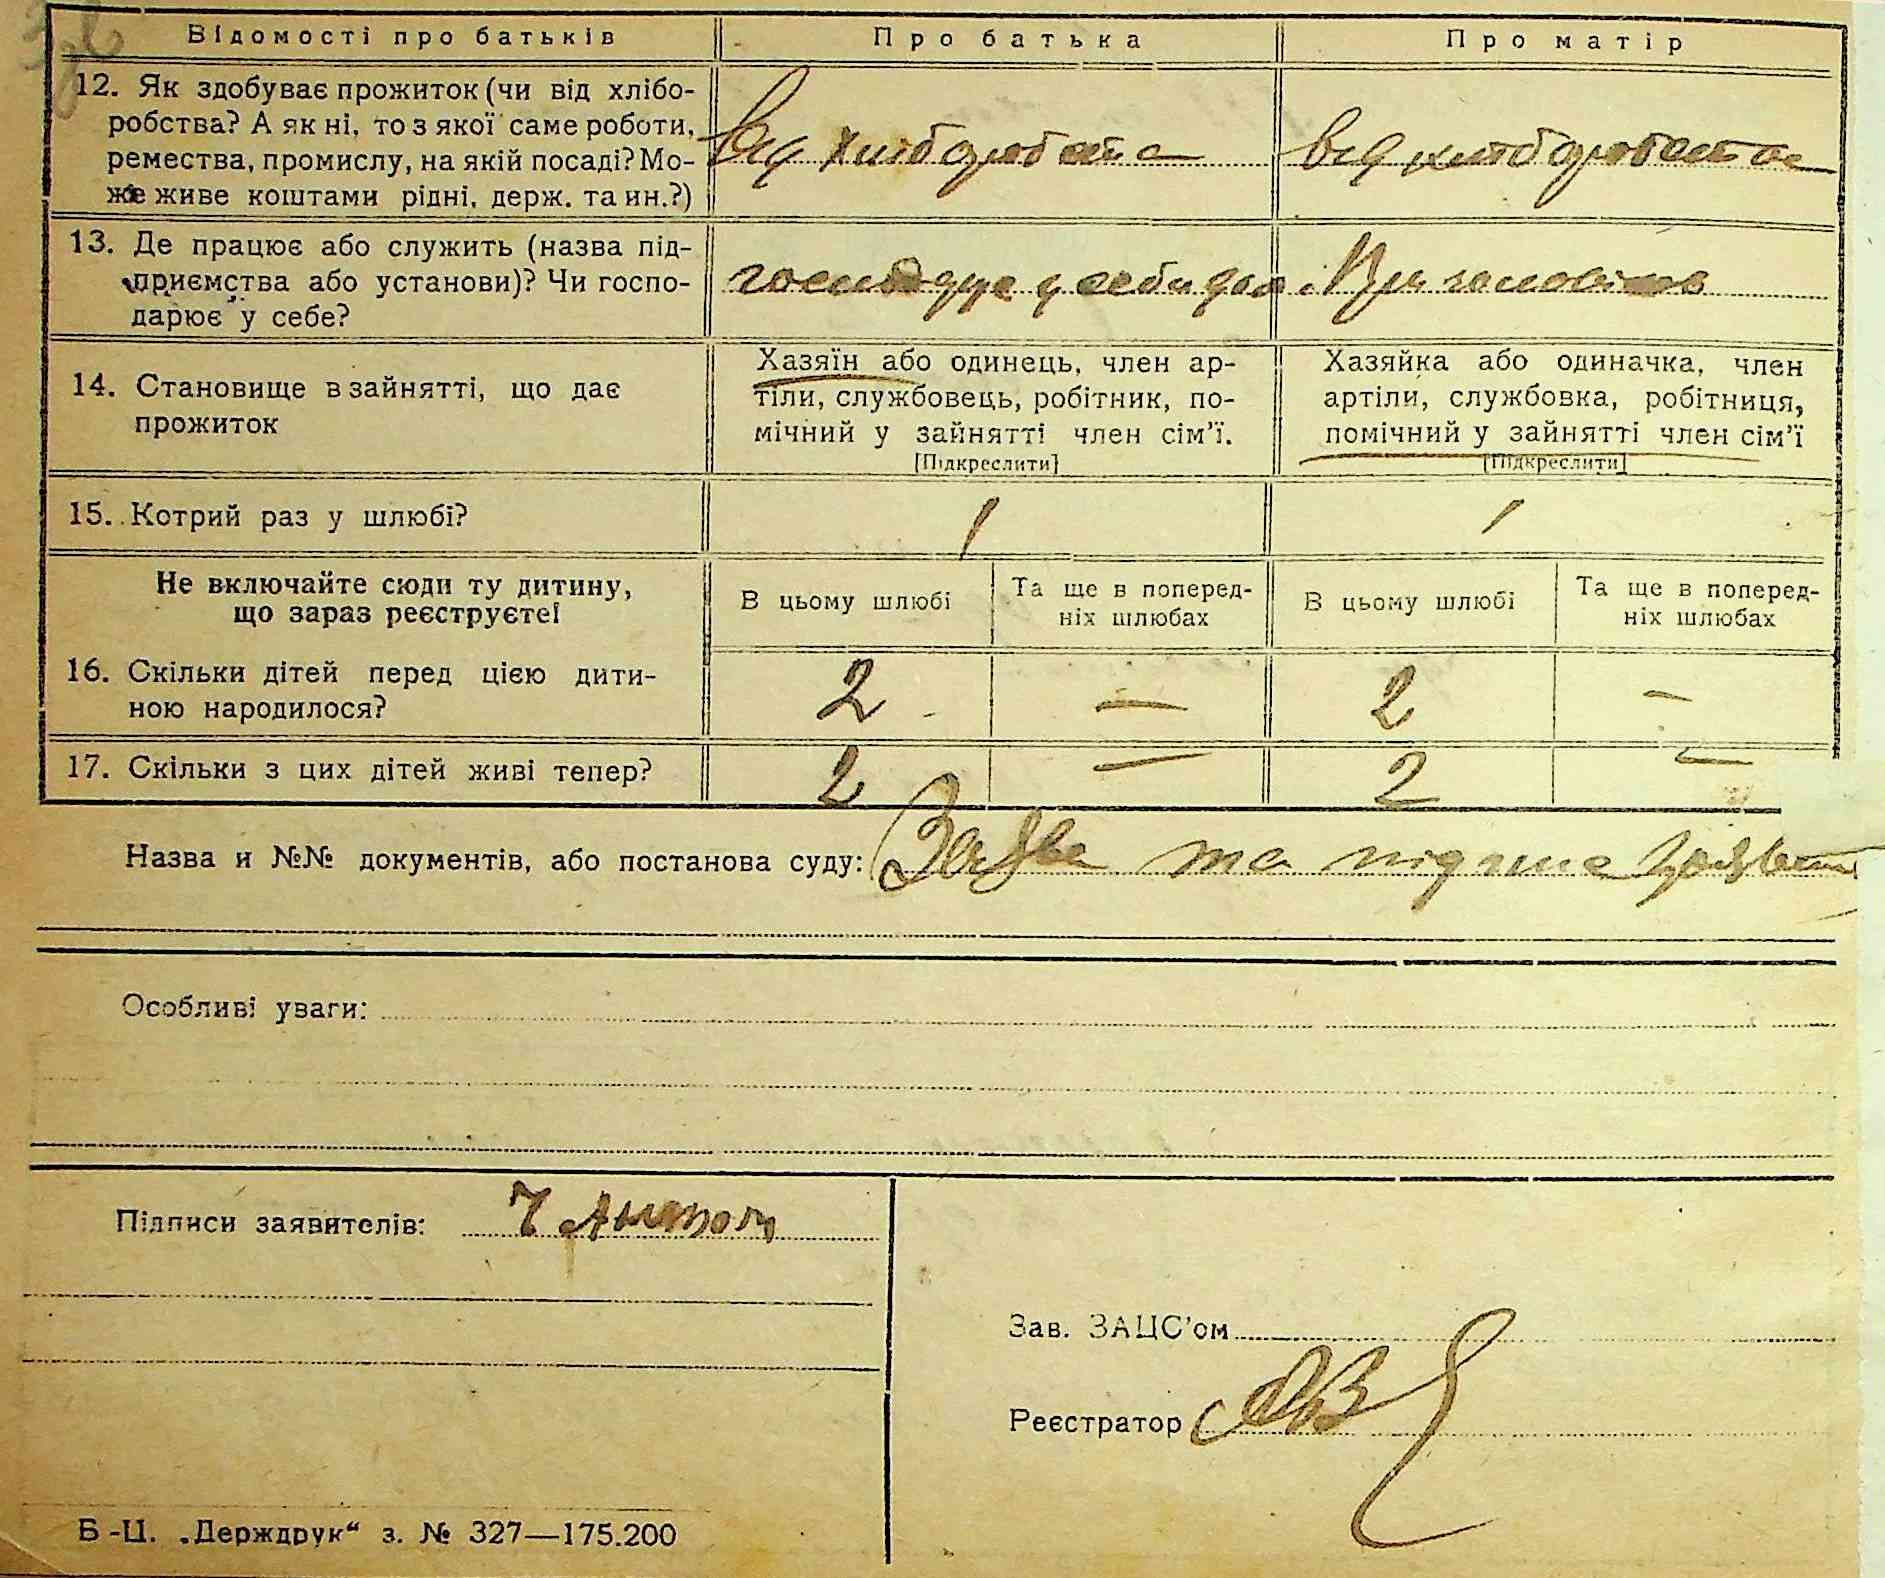 Відомості про батьків
Про батька
Про матір
12. Як здобуває прожиток (чи від хлібо-
робства? А як ні, то з якої саме роботи,
ремества, промислу, на якій посаді? Мо-
же живе коштами рідні, держ. та ин.?)
від хліборобства
від хліборобства
13. Де працює або служить (назва під-
приємства або установи)? Чи госпо-
дарює у себе?
господарує у себе
При чоловікові
14. Становище в зайнятті, що дає
прожиток
Хазяїн або одинець, член ар-
тіли, службовець, робітник, по-
мічний у зайнятті член сім’ї.
[Підкреслити]
Хазяйка або одиначка, член
артіли, службовка, робітниця,
помічний у зайнятті член сім’ї
[Підкреслити]
15. Котрий раз у шлюбі?
1
1
Не включайте сюди ту дитину,
що зараз реєструєте!
В цьому шлюбі
Та ще в поперед-
ніх шлюбах
В цьому шлюбі
Та ще в поперед-
ніх шлюбах
16. Скільки дітей перед цією дити-
ною народилося?
2 — 2 —
17. Скільки з цих дітей живі тепер?
2 — 2 —
Назва и №№ документів, або постанова суду: Заява та
Особливі уваги:
Підписи заявителів:
Зав. ЗАЦС’ом
Реєстратор
Б-Ц. „Держдрук“ з. № 327—175.200